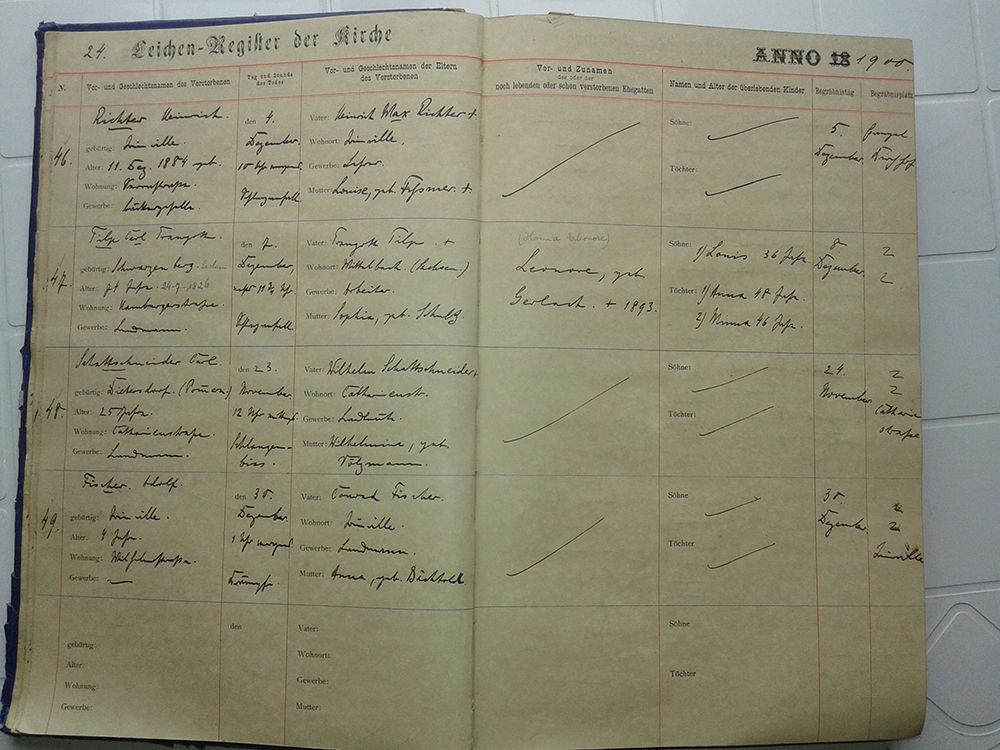 24. Leichen-Register der Kirche
ANNO 18 1900.
N.
Vor- und Geschlechtsnamen des Verstorbenen
Tag und Stunde des Todes
Vor- und Geschlechtsnamen der Eltern des Verstorbenen
Vor- und Zunamen
des oder der
noch lebenden oder schon verstorbenen Ehegatten
Namen und Alter der überlebenden Kinder
Begräbnistag
Begräbnisplatz
46.
Richter Heinrich.
gebürtig: Joinville.
Alter: 11. Dez. 1884 geb.
Wohnung:
Gewerbe:
den 4.
Dezember.
10 Uhr morgens
Vater: Heinrich Max Richter +
Wohnort: Joinville,
Gewerbe:
Mutter: Louise, geb. +
Söhne:
Töchter:
5.
Dezember.
47.
Tilp Carl Traugott.
gebürtig: Schwarzenberg. Sachsen
Alter: 74 Jahre. 24-9-1826
Wohnung: Hamburgerstrasse.
Gewerbe: Landmann.
den 7.
Dezember,
Vater: Traugott Tilp. +
Wohnort: Mittelbach. (Sachsen.)
Gewerbe: Arbeiter.
Mutter: Sophia, geb. Schultz.
(Hanna Eleonore)
Leonore, geb
Gerlach. + 1893.
Söhne:
1) Louis 36 Jahre.
Töchter: 1) Anna 48 Jahre.
2) Minna 46 Jahre.
8
Dezember.
48.
Schattschneider Carl.
gebürtig: Dietersdorf. (Pommern)
Alter: 25 Jahre.
Wohnung: Catharinenstrasse.
Gewerbe: Landmann.
den 23.
November.
12 Uhr mittags.
Schlangen-
biss.
Vater: Wilhelm Schattschneider,
Wohnort: Catharinenstr.
Gewerbe: Landleute.
Mutter: Wilhelmine, geb
Völzmann.
Söhne:
Töchter:
24.
November.
Catharinen
strasse
49.
Fischer. Adolf.
gebürtig: Joinville.
Alter: 4 Jahre.
Wohnung: Wilhelmstrasse.
Gewerbe: —
den 30.
Dezember.
1 Uhr morgens
Krämpfe.
Vater: Conrad Fischer.
Wohnort: Joinville.
Gewerbe: Landmann.
Mutter: Anna, geb. Bächtold
Söhne
Töchter
30
Dezember.
Joinville
gebürtig:
Alter:
Wohnung:
Gewerbe:
den
Vater:
Wohnort:
Gewerbe:
Mutter:
Söhne
Töchter